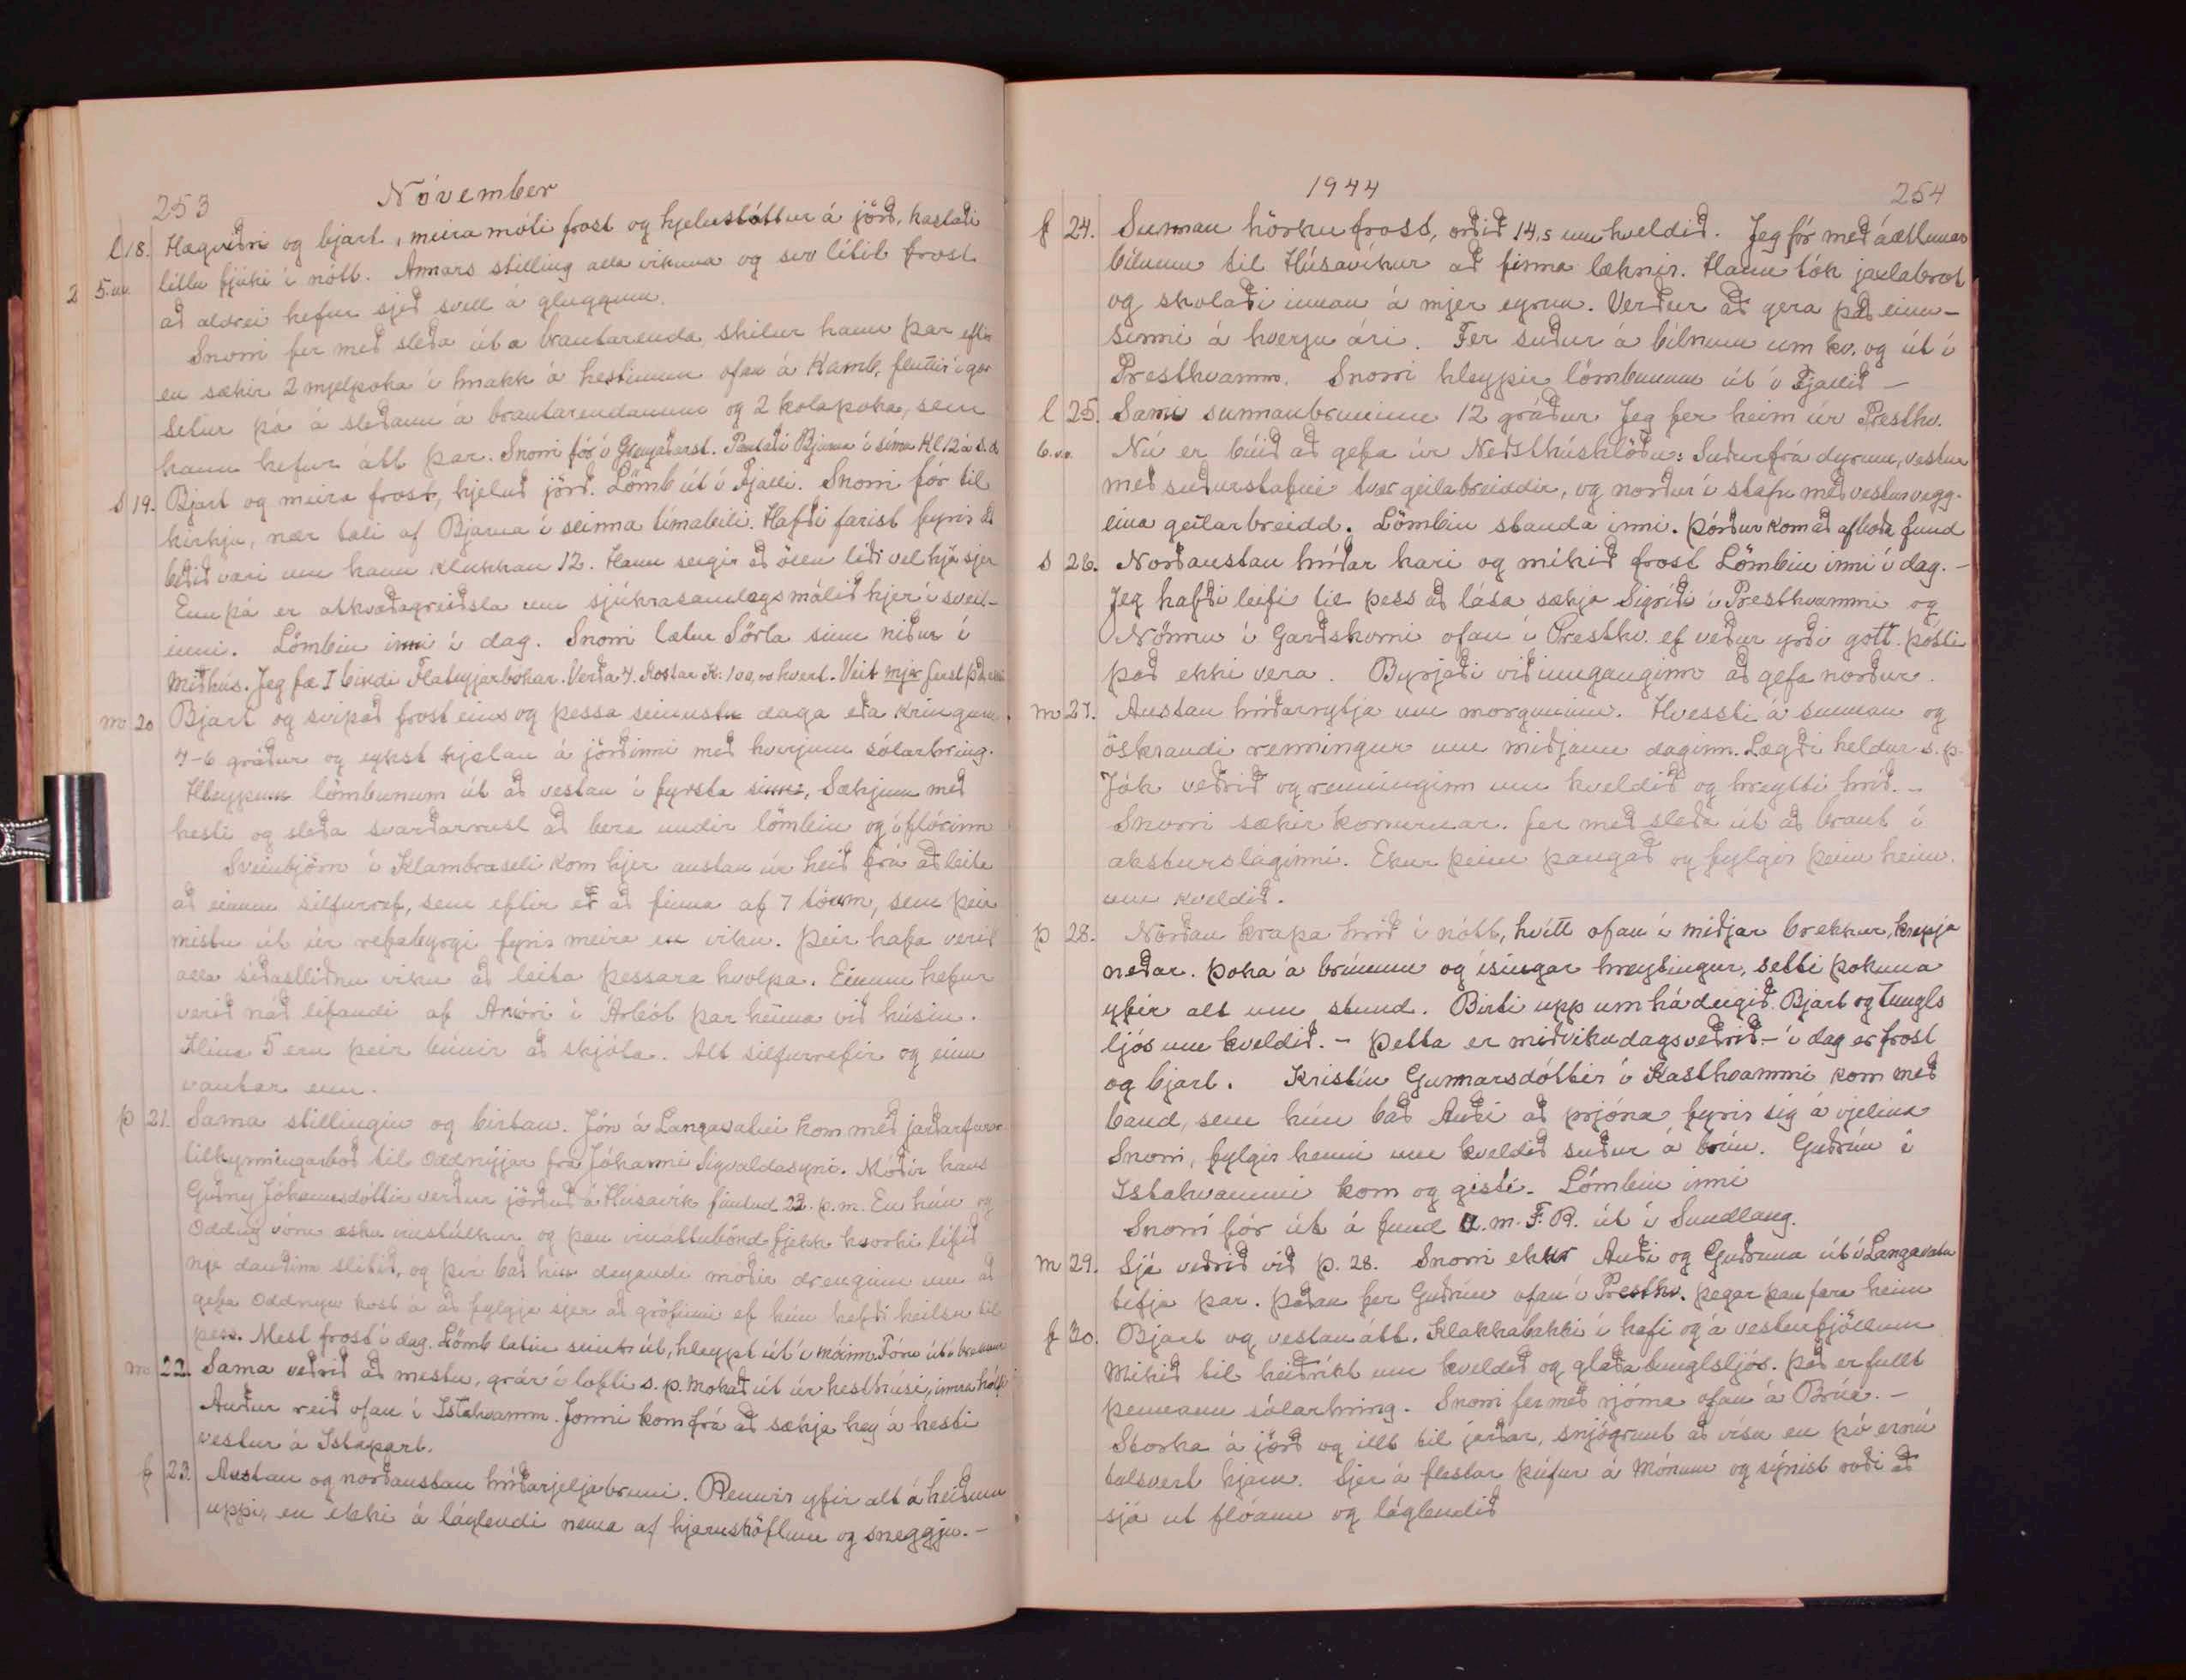 253 Nóvember
l 18. Hægviðri og bjart, meira móti frost og hjeluslóttur á jörð, kastaði
2 5.vv. litlu fjúki í nótt. Annars stilling alla vikuna og svo lítið frost
að aldrei hefur sjeð svell á gluggum.
Snorri fer með sleða út á brautarenda, skilur hann þar eftir
en sækir 2 mjelpoka í hnakk á hestinum ofan á Kamb, fluttir í gær
Setur þá á sleðann á brautarendanum og 2 kolapoka, sem
hann hefur átt þar. Snorri fór í Grenjaðarst. Pantaði Bjarna í síma Kl 12 á s.d.
s 19. Bjart og meira frost, hjeluð jörð. Lömb út í Fjalli. Snorri fór til
kirkju, nær tali af Bjarna í seinna tímabili. Hafði farist fyrir að
beðið væri um hann klukkan 12. Hann segir að öllu líði vel hjá sjer
Enn þá er atkvæðagreiðsla um sjúkrasamlagsmálið hjer í sveit-
inni. Lömbin inni í dag. Snorri lætur Sörla sinn niður í
Miðhús. Jeg fæ I bindi Flateyjarbókar. Verða 4. Kostar K: 100,00 hvert. Veit mjer ferst það ekki
m 20 Bjart og svipað frost eins og þessa seinustu daga eða kringum
4-6 gráður og eykst hjelan á jörðinni með hverjum sólarhring.
Hleypum lömbunum út að vestan í fyrsta sinni, Sækjum með
hesti og sleða svarðarrusl að bera undir lömbin og í flórinn
Sveinbjörn í Klambraseli kom hjer austan úr heið frá að leita
að einum silfurref, sem eftir er að finna af 7 tóum, sem þeir
mistu út úr refabyrgi fyrir meira en viku. Þeir hafa verið
alla síðastliðnu viku að leita þessara hvolpa. Einum hefur
verið náð lifandi af Arnóri í Árbót þar heima við húsin.
Hina 5 eru þeir búnir að skjóta. Alt silfurrefir og einn
vantar enn.
þ 21. Sama stillingin og birtan. Jón á Langavatni kom með jarðarfarar
tilkynningarboð til Oddnýjar frá Jóhanni Sigvaldasyni. Móðir hans
Guðny Jóhannesdóttir verður jörðuð á Húsavík fimtud 23. þ.m. En hún og
Oddný vóru æsku vinstúlkur og þau vináttubönd fjekk hvorki lífið
nje dauðinn slitið, og því bað hin deyandi móðir drenginn um að
gefa Oddnýu kost á að fylgja sjer að gröfinni ef hún hefði heilsu til
þess. Mest frost í dag. Lömb látin suður út, hleypt út í móinn. Fóru út í brekkur
m 22. Sama veðrið að mestu, grár í lofti s.p. Mokað út úr hesthúsi, innra hólfi
Auður reið ofan í Ystahvamm. Jonni kom frá að sækja hey á hesti
vestur á Istapart.
f 23. Austan og norðaustan hríðarjeljabruni. Rennir yfir alt á heiðum
uppi, en ekki á láglendi nema af hjarnsköflum og sneggju.-
1944 254
f 24. Sunnan hörku frost, orðið 14,5 um kveldið. Jeg fór með áætlunar
bílnum til Húsavíkur að finna læknir. Hann tók jaxlabrot
og skolaði innan á mjer eyrun. Verður að gera það einu-
sinni á hverju ári. Fer suður á bílnum um kv. og út í
Presthvamm. Snorri hleypir lömbunum út í Fjallið -
l 25. Sami sunnanbruninn 12 gráður Jeg fer heim úr Presthv.
6.v.v. Nú er búið að gefa úr Neðsthúshlöðu: Suðurfrá dyrum, vestur
með suðurstafni tvær geilabreiddir, og norður í stafn með vesturvegg.
eina geilarbreidd. Lömbin standa inni. Þórður kom að afboða fund
s 26. Norðaustan hríðar kari og mikið frost Lömbin inni í dag. -
Jeg hafði leifi til þess að láta sækja Sigríði í Presthvammi og
Nönnu í Garðshorni ofan í Presthv. ef veður yrði gott. Þótti
það ekki vera. Byrjaði við innganginn að gefa norður.
m 27. Austan hríðarnytja um morguninn. Hvessti á sunnan og
öskrandi renningur um miðjann daginn. Lægði heldur s.p.
Jók veðrið og renninginn um kveldið og breytti hríð. -
Snorri sækir konurnar. fer með sleða út að braut í
aksturslaginni. Ekur þeim þangað og fylgir þeim heim.
um kveldið.
þ 28. Norðan krapa hríð í nótt, hvítt ofan í miðjar brekkur, krepja
neðar. Þoka á brúnum og ísingar hreytingur, setti þokuna
yfir alt um stund. Birti upp um hádegið. Bjart og tungls
ljós um kveldið. - Þetta er miðvikudagsveðrið - í dag er frost
og bjart. Kristín Gunnarsdóttir í Kasthvammi kom með
band, sem hún bað Auði að prjóna fyrir sig á vjelina
Snorri, fylgir henni um kveldið suður á brún. Guðrún í
Istahvammi kom og gisti. Lömbin inni
Snorri fór út á fund U.m.F.R. út í Sundlaug.
m 29. Sjá veðrið við þ. 28. Snorri ekur Auði og Guðrúna út í Langavatn
tefja þar. Þaðan fer Guðrún ofan í Presthv. þegar þau fara heim
f 30. Bjart og vestan átt. Klakkabakki í hafi og á vesturfjöllum
Mikið til heiðríkt um kveldið og glaða tunglsljós. Það er fullt
þennann sólarhring. Snorri fer með rjóma ofan á Brúa. -
Storka á jörð og illt til jarðar, snjógrunt að vísu en þó er nú
talsvert hjarn. Sjer á flestar þúfur á Mónum og sýnist roði að
sjá ut flóann og láglendið